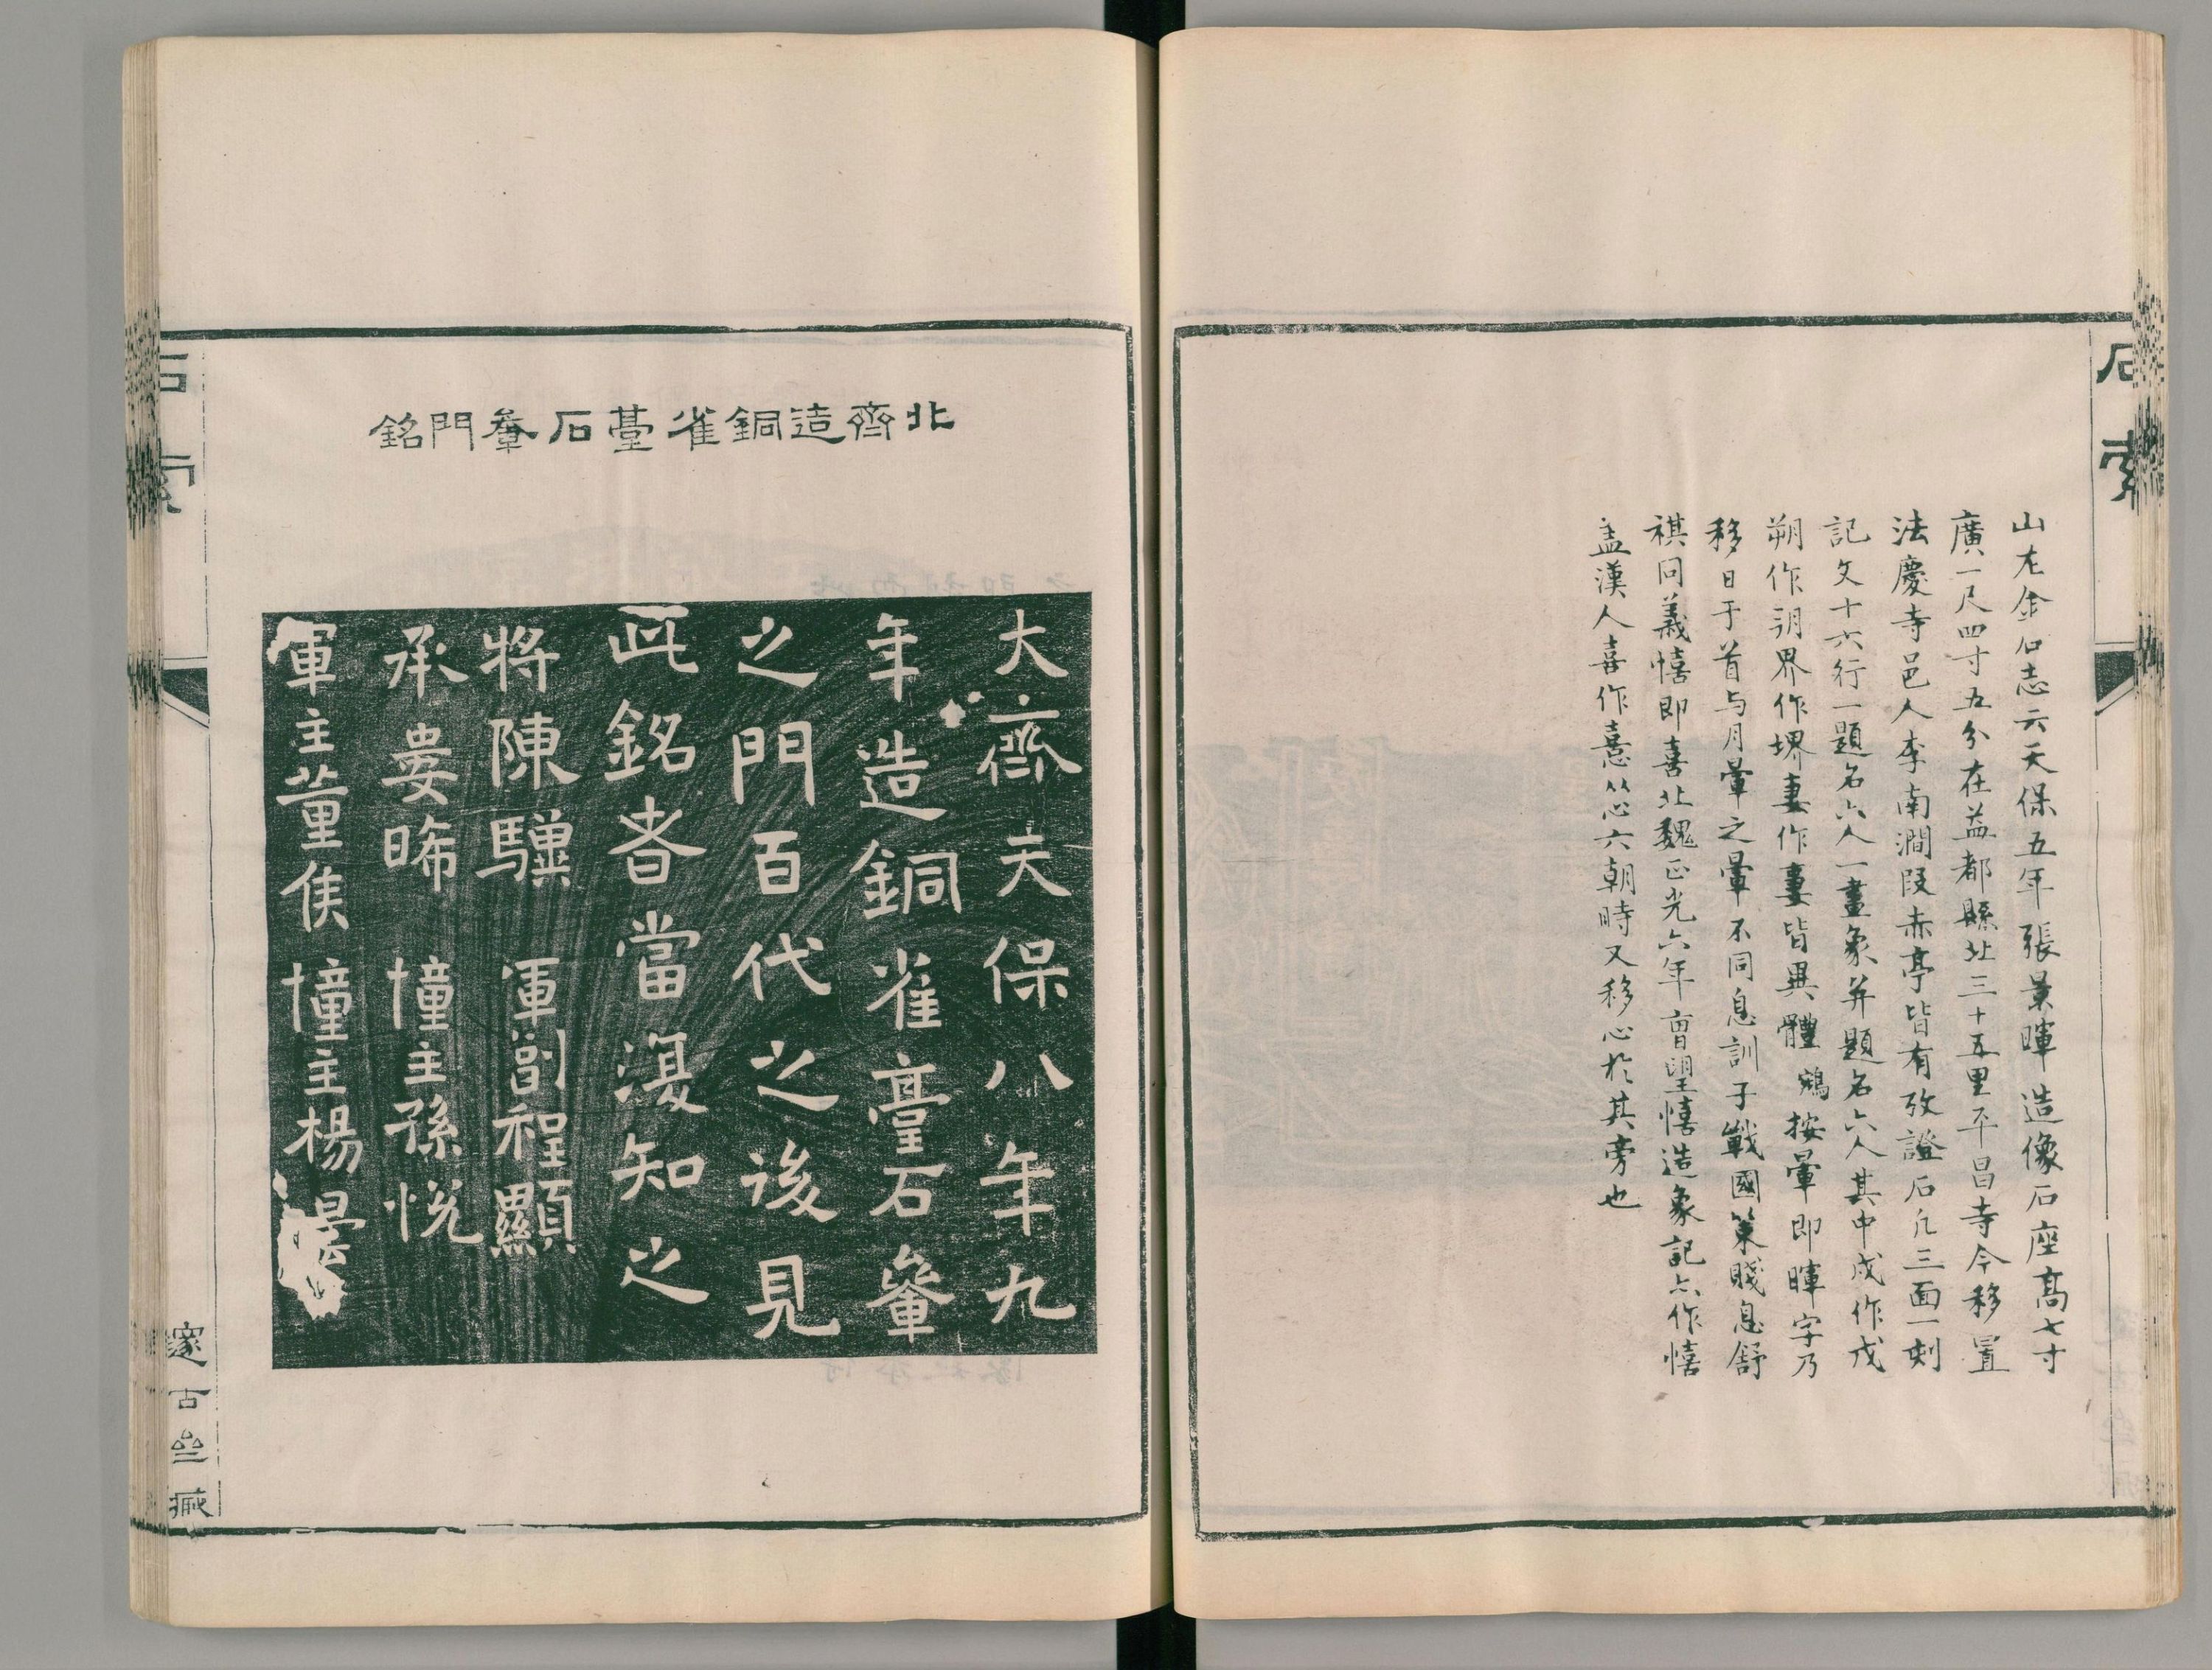 石索
山左金石志云天保五年張景暉造像石座高七寸
廣一尺四寸五分在益都縣北三十五里不昌寺今移置
法慶寺邑人李南澗段赤亭皆有攷證石凡三面一刻
記文十六行一題名六人一畫象并題名六人其中戍作戊
朔作玥界作堺妻作妻皆異體鵷按暈即暉字乃
移日于首與月暈之暈不同息訓子戰國策賤息舒
祺同義憘即喜北魏正光六年曹望憘造象記亦作憘
盖漢人喜作憙从心六朝時又移心於其旁也
北齊造銅雀臺石軬門銘
大齊天保八年九
年造銅雀臺石軬
之門百代之後見
此銘者當復知之
將陳驥 軍副程顯
承婁晞 幢主孫悅
軍主董侯 幢主楊曇
石索
邃古亝藏